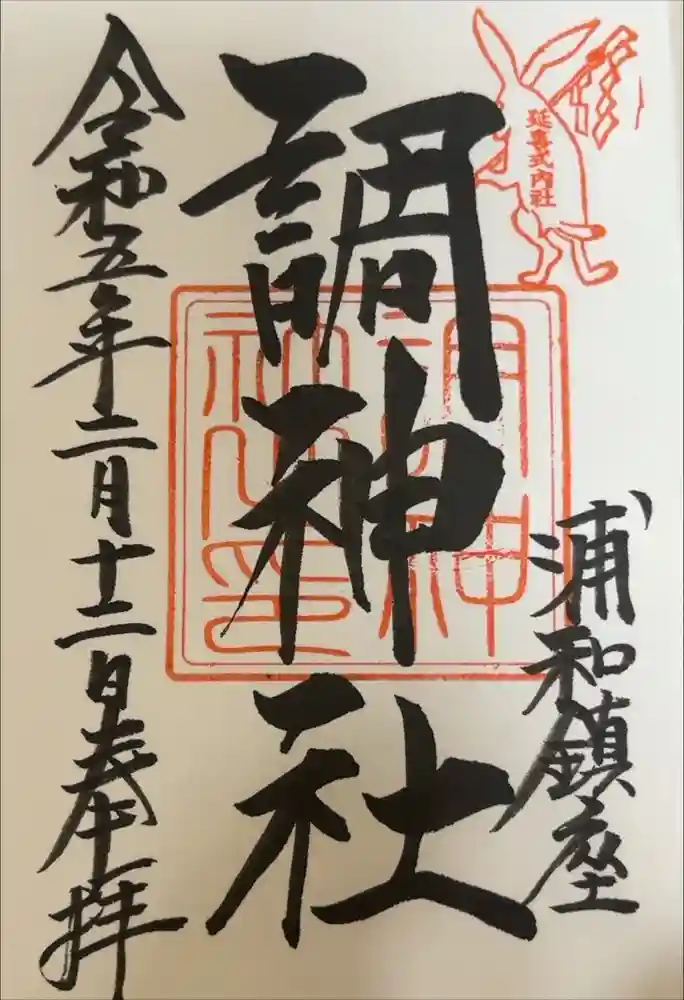 延喜式内社
浦和鎮座
調神社
調神社之印
令和五年二月十二日奉拝